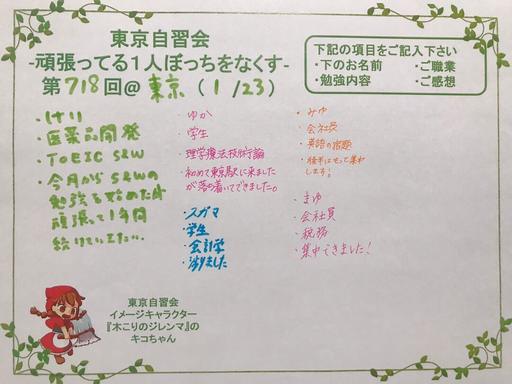 東京自習会
-頑張ってる1人ぼっちをなくす-
第718回@東京(1/23)
下記の項目をご記入下さい
・下のお名前 ・ご職業
・勉強内容 ・ご感想
・けい
・医薬品開発
・TOEIC S&W
・今月からS&Wの
勉強を始めた
頑張って1年間
続けていきたい。
・ゆか
・学生
・理学療法技術論
・初めて東京駅に来ました
が落ち着いてできました。
・スガマ
・学生
・会計学
・渉りました
・みゆ
・会社員
・英語の宿題
・後半にもって集中
します!
・まゆ
・会社員
・税務
・集中できました!
東京自習会
イメージキャラクター
『木こりのジレンマ』の
キコちゃん